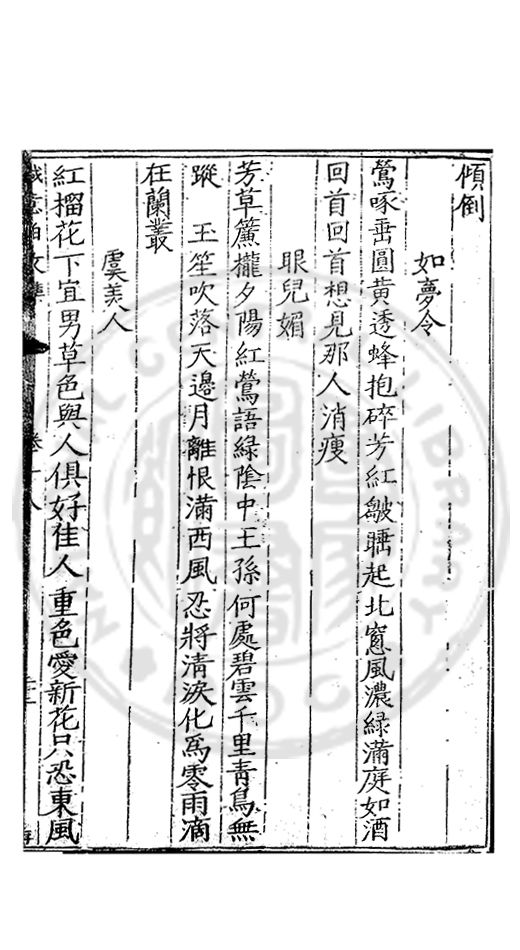 傾倒
如夢令
鶯啄垂圓黄透蜂抱碎芳紅皺睡起北窻風濃緑滿庭如酒
回首回首想見那人消瘦
眼兒媚
芳草簾攏夕陽紅鶯語緑陰中王孫何處碧雲千里青鳥無
蹤　玉笙吹落天邊月離恨滿西風忍將清淚化爲零雨滴
在蘭叢
虞美人
紅榴花下宜男草色與人俱好佳人重色愛新花只恐東風
誠意伯文集 卷十八